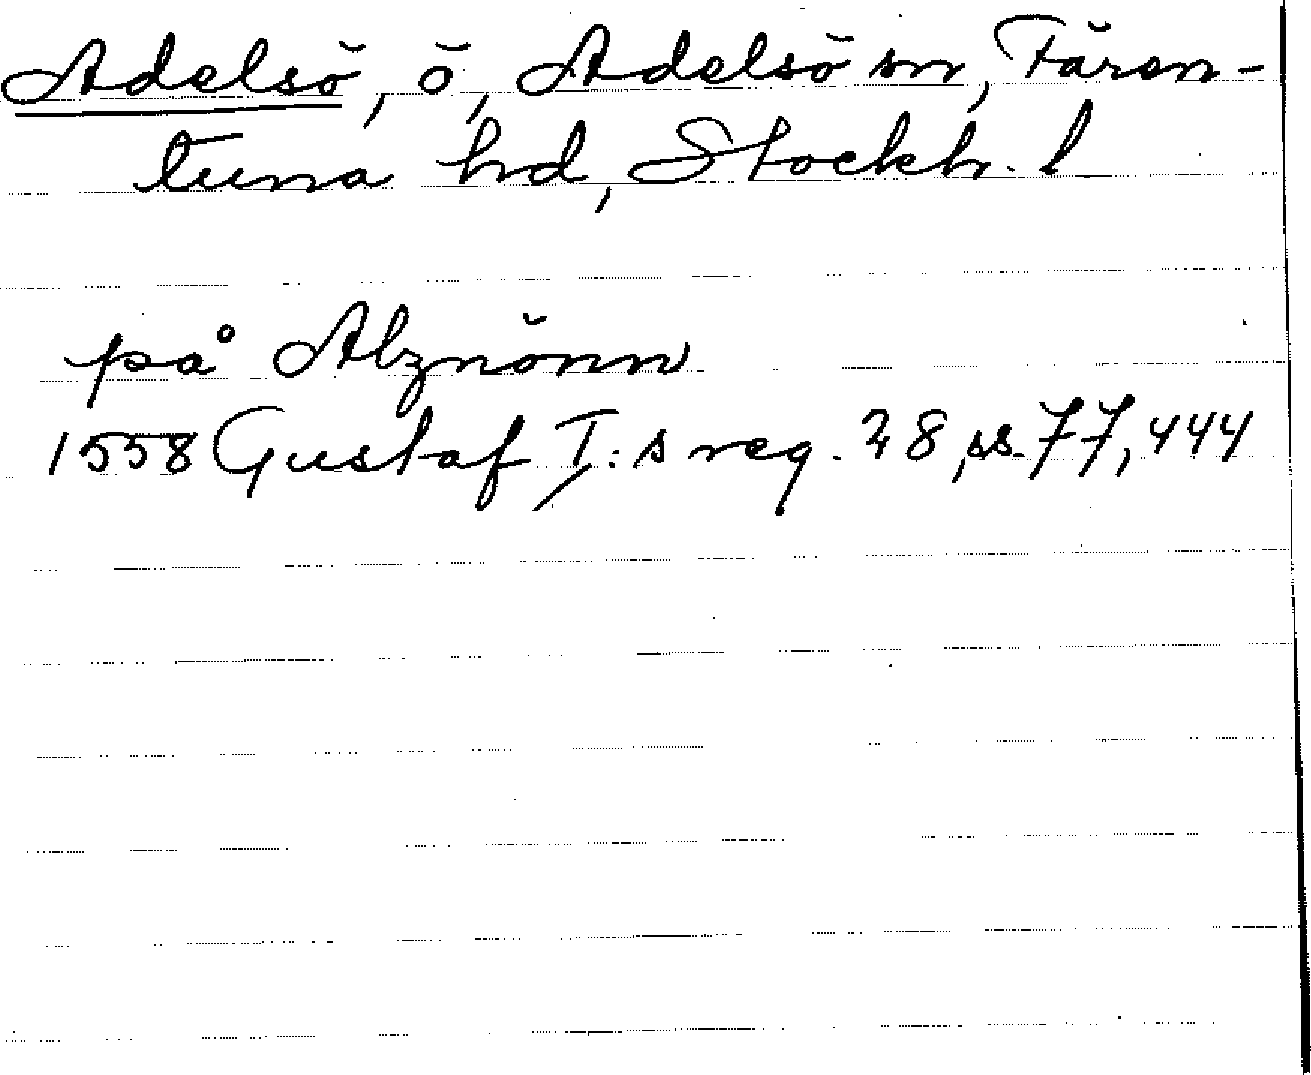 Adelsö, ö, Adelsö sn, Fären-
tuna hd, Stockh. l
på Alznönn
1558 Gustaf I:s reg. 28, ss. 77, 444